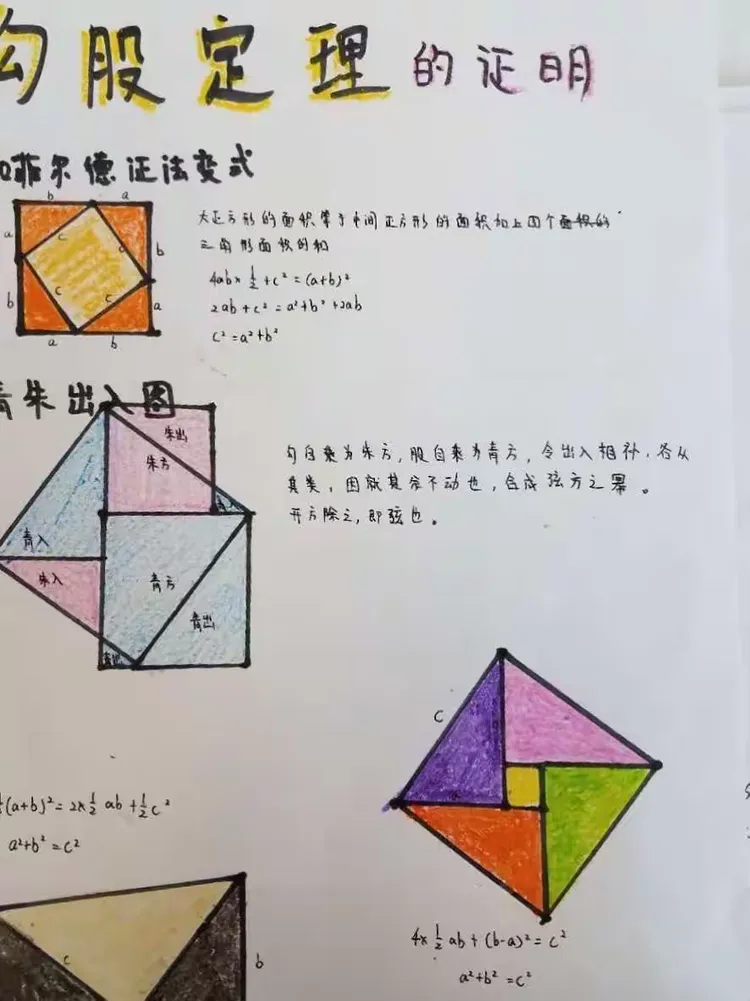 勾股定理的证明
加菲尔德证法变式
b a
a c c b
b c c a
a b
大正方形的面积等于中间正方形的面积加上四个面积的
三角形面积的和
4ab×½+c²=(a+b)²
2ab+c²=a²+b²+2ab
c²=a²+b²
青朱出入图
朱出
朱方
青入
朱入
青方
青出
青出
勾自乘为朱方,股自乘为青方,令出入相补,各从
其类,因就其余不动也,合成弦方之幂。
开方除之,即弦也。
c
½(a+b)²=2×½ab+½c²
a²+b²=c²
c
b
4×½ab+(b-a)²=c²
a²+b²=c²